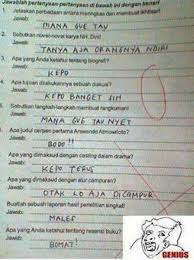 Jawablah pertanyaan-pertanyaan di bawah ini dengan benar!
1. Jelaskan perbedaan antara meringkas dan membuat ikhtisar!
Jawab:
MANA GUE TAU
2. Sebutkan novel-novel karya NH. Dini!
Jawab:
TANYA AJA ORANGNYA NDIRI
3. Apa yang Anda ketahui tentang biografi?
Jawab:
KEPO
4. Apa tujuan dilakukannya sebuah diskusi?
Jawab:
KEPO BANGET SIH
5. Sebutkan langkah-langkah membuat rangkuman!
Jawab:
MANA GUE TAU NYET
6. Apa judul cerpen pertama Arswendo Atmowiloto?
Jawab:
BODO!!
Apa yang dimaksud dengan casting dalam drama?
Jawab:
KEPO TERUS
Apa yang dimaksud dengan alur campuran?
Jawab:
OTAK LO AJA DICAMPUR
Buatlah sebuah laporan hasil penelitian singkat!
Jawab:
MALES
Apa yang Anda ketahui tentang resensi buku?
Jawab:
BOMAT!
GENIUS